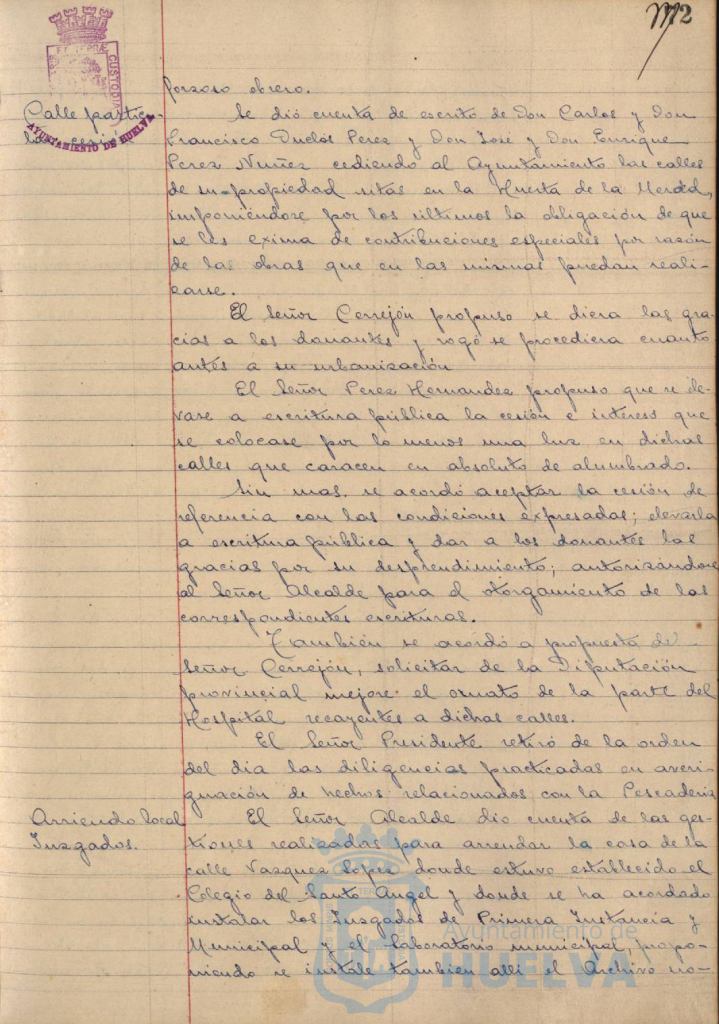 172
forzoso obrero.
Calle particu-
Se dió cuenta de escrito de Don Carlos y Don
Francisco Duclós Perez y Don José y Don Enrique
Perez Nuñez cediendo al Ayuntamiento las calles
de su propiedad sitas en la Huerta de la Merced,
imponiéndose por los últimos la obligación de que
se les exima de contribuciones especiales por razón
de las obras que en las mismas puedan reali-
zarse.
El Señor Cerrejón propuso se diera las gra-
cias a los donantes y rogó se procediera cuanto
antes a su urbanización
El Señor Perez Hernandez propuso que se ele-
vase a escritura pública la cesión e interesó que
se colocase por lo menos una luz en dichas
calles que caracen en absoluto de alumbrado.
Sin mas, se acordó aceptar la cesión de
referencia con las condiciones expresadas; elevarla
a escritura pública y dar a los donantes las
gracias por su desprendimiento; autorizándose
al Señor Alcalde para el otorgamiento de las
correspondientes escrituras.
También se acordó a propuesta del
Señor Cerrejón, solicitar de la Diputación
provincial mejore el ornato de la parte del
Hospital recayentes a dichas calles.
El Señor Presidente retiró de la orden
del dia las diligencias practicadas en averi-
guación de hechos relacionados con la Pescaderia
Arriendo local
Juzgados.
El Señor Alcalde dio cuenta de las ges-
tiones realizadas para arrendar la casa de la
calle Vazquez Lopez donde estuvo establecido el
Colegio del Santo Angel y donde se ha acordado
instalar los Juzgados de Primera Instancia y
Municipal y el laboratorio municipal, propo-
niendo se instale tambien alli el Archivo no-
CUSTODIA
AYUNTAMIENTO DE HUELVA
Ayuntamiento de
HUELVA